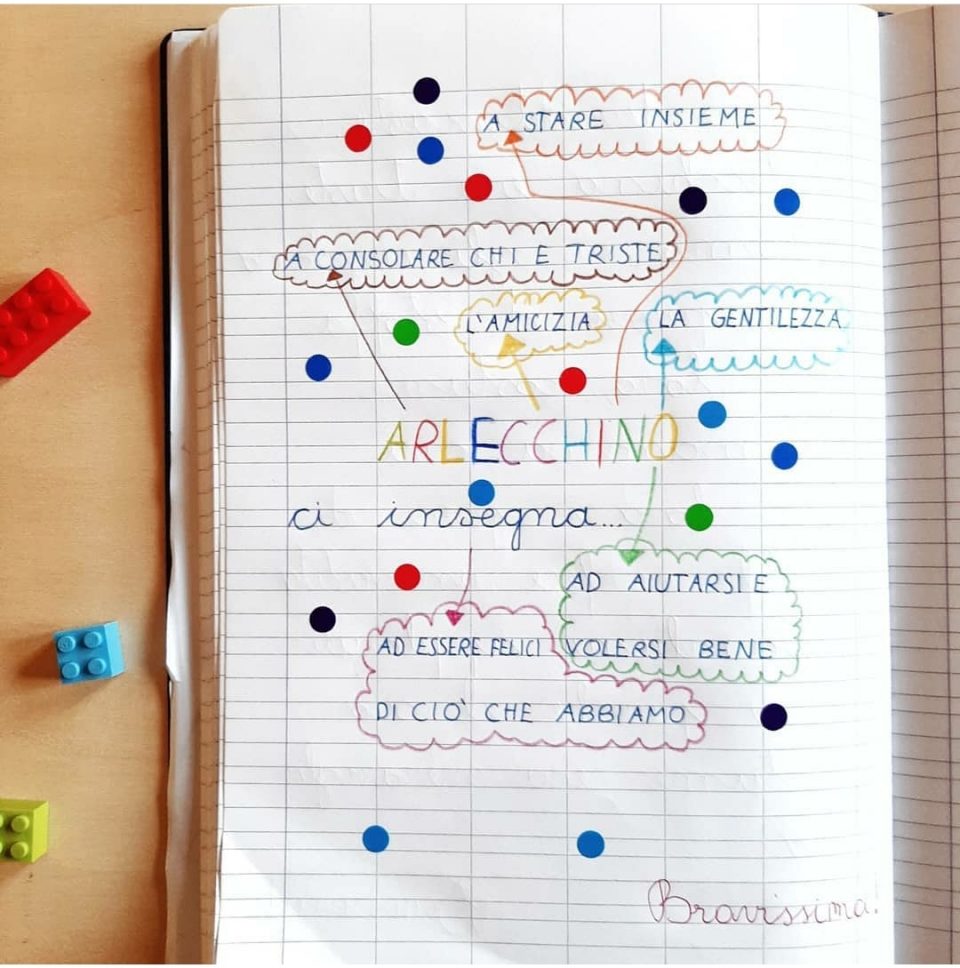 A STARE INSIEME
A CONSOLARE CHI E TRISTE
L'AMICIZIA
LA GENTILEZZA
ARLECCHINO
ci insegna...
AD AIUTARSI E
VOLERSI BENE
AD ESSERE FELICI
DI CIÒ CHE ABBIAMO
Bravissima!